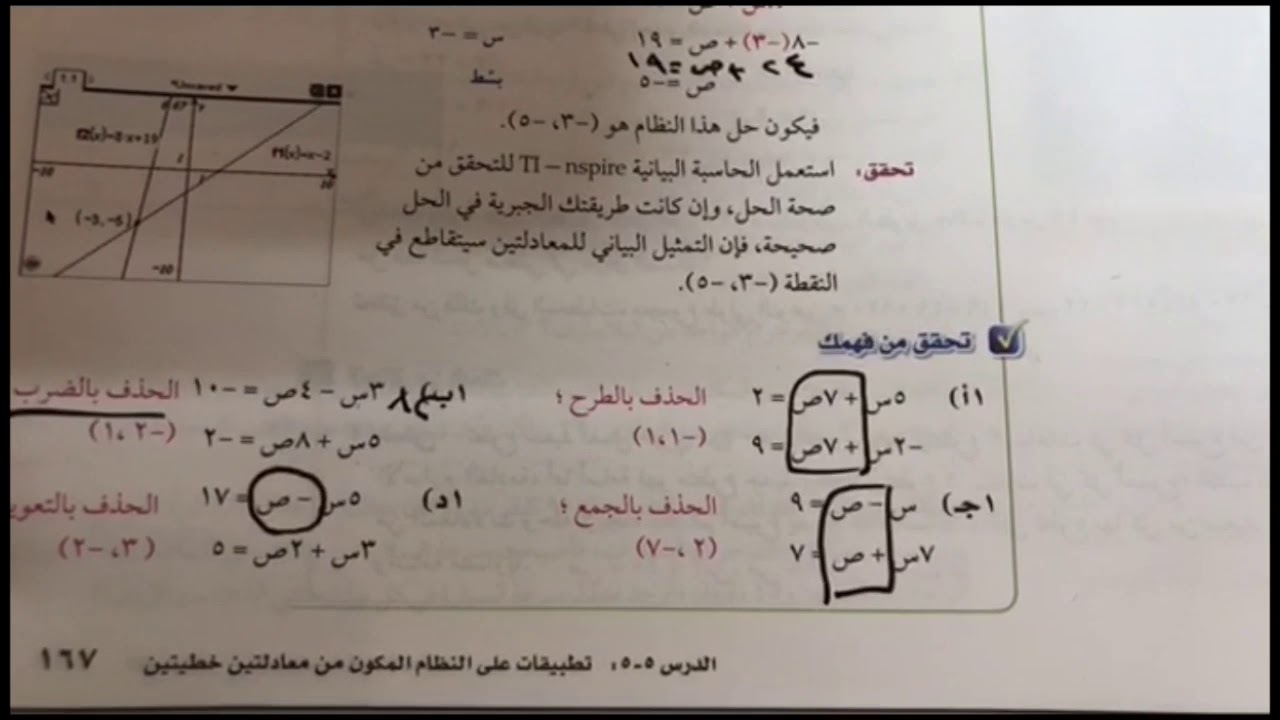 -٨(-٣) + ص = ١٩ س = -٣
٢٤ + ص = ١٩
ص = -٥ بسّط
فيكون حل هذا النظام هو (-٣، -٥).
تحقق: استعمل الحاسبة البيانية TI – nspire للتحقق من
صحة الحل، وإن كانت طريقتك الجبرية في الحل
صحيحة، فإن التمثيل البياني للمعادلتين سيتقاطع في
النقطة (-٣، -٥).
1.1 *Unsaved
6.67 y
f2(x)=8·x+19
f1(x)=x-2
-10
(-3,-5)
-10
تحقق من فهمك
١أ) ٥س + ٧ص = ٢ الحذف بالطرح ؛
-٢س + ٧ص = ٩ (-١،١)
١ب) ٣س - ٤ص = -١٠ الحذف بالضرب
٥س + ٨ص = -٢ (-٢، ١)
١جـ) س - ص = ٩ الحذف بالجمع ؛
٧س + ص = ٧ (٢، -٧)
١د) ٥س - ص = ١٧
٣س + ٢ص = ٥ (٣، -٢)
الدرس ٥-٥: تطبيقات على النظام المكون من معادلتين خطيتين ١٦٧